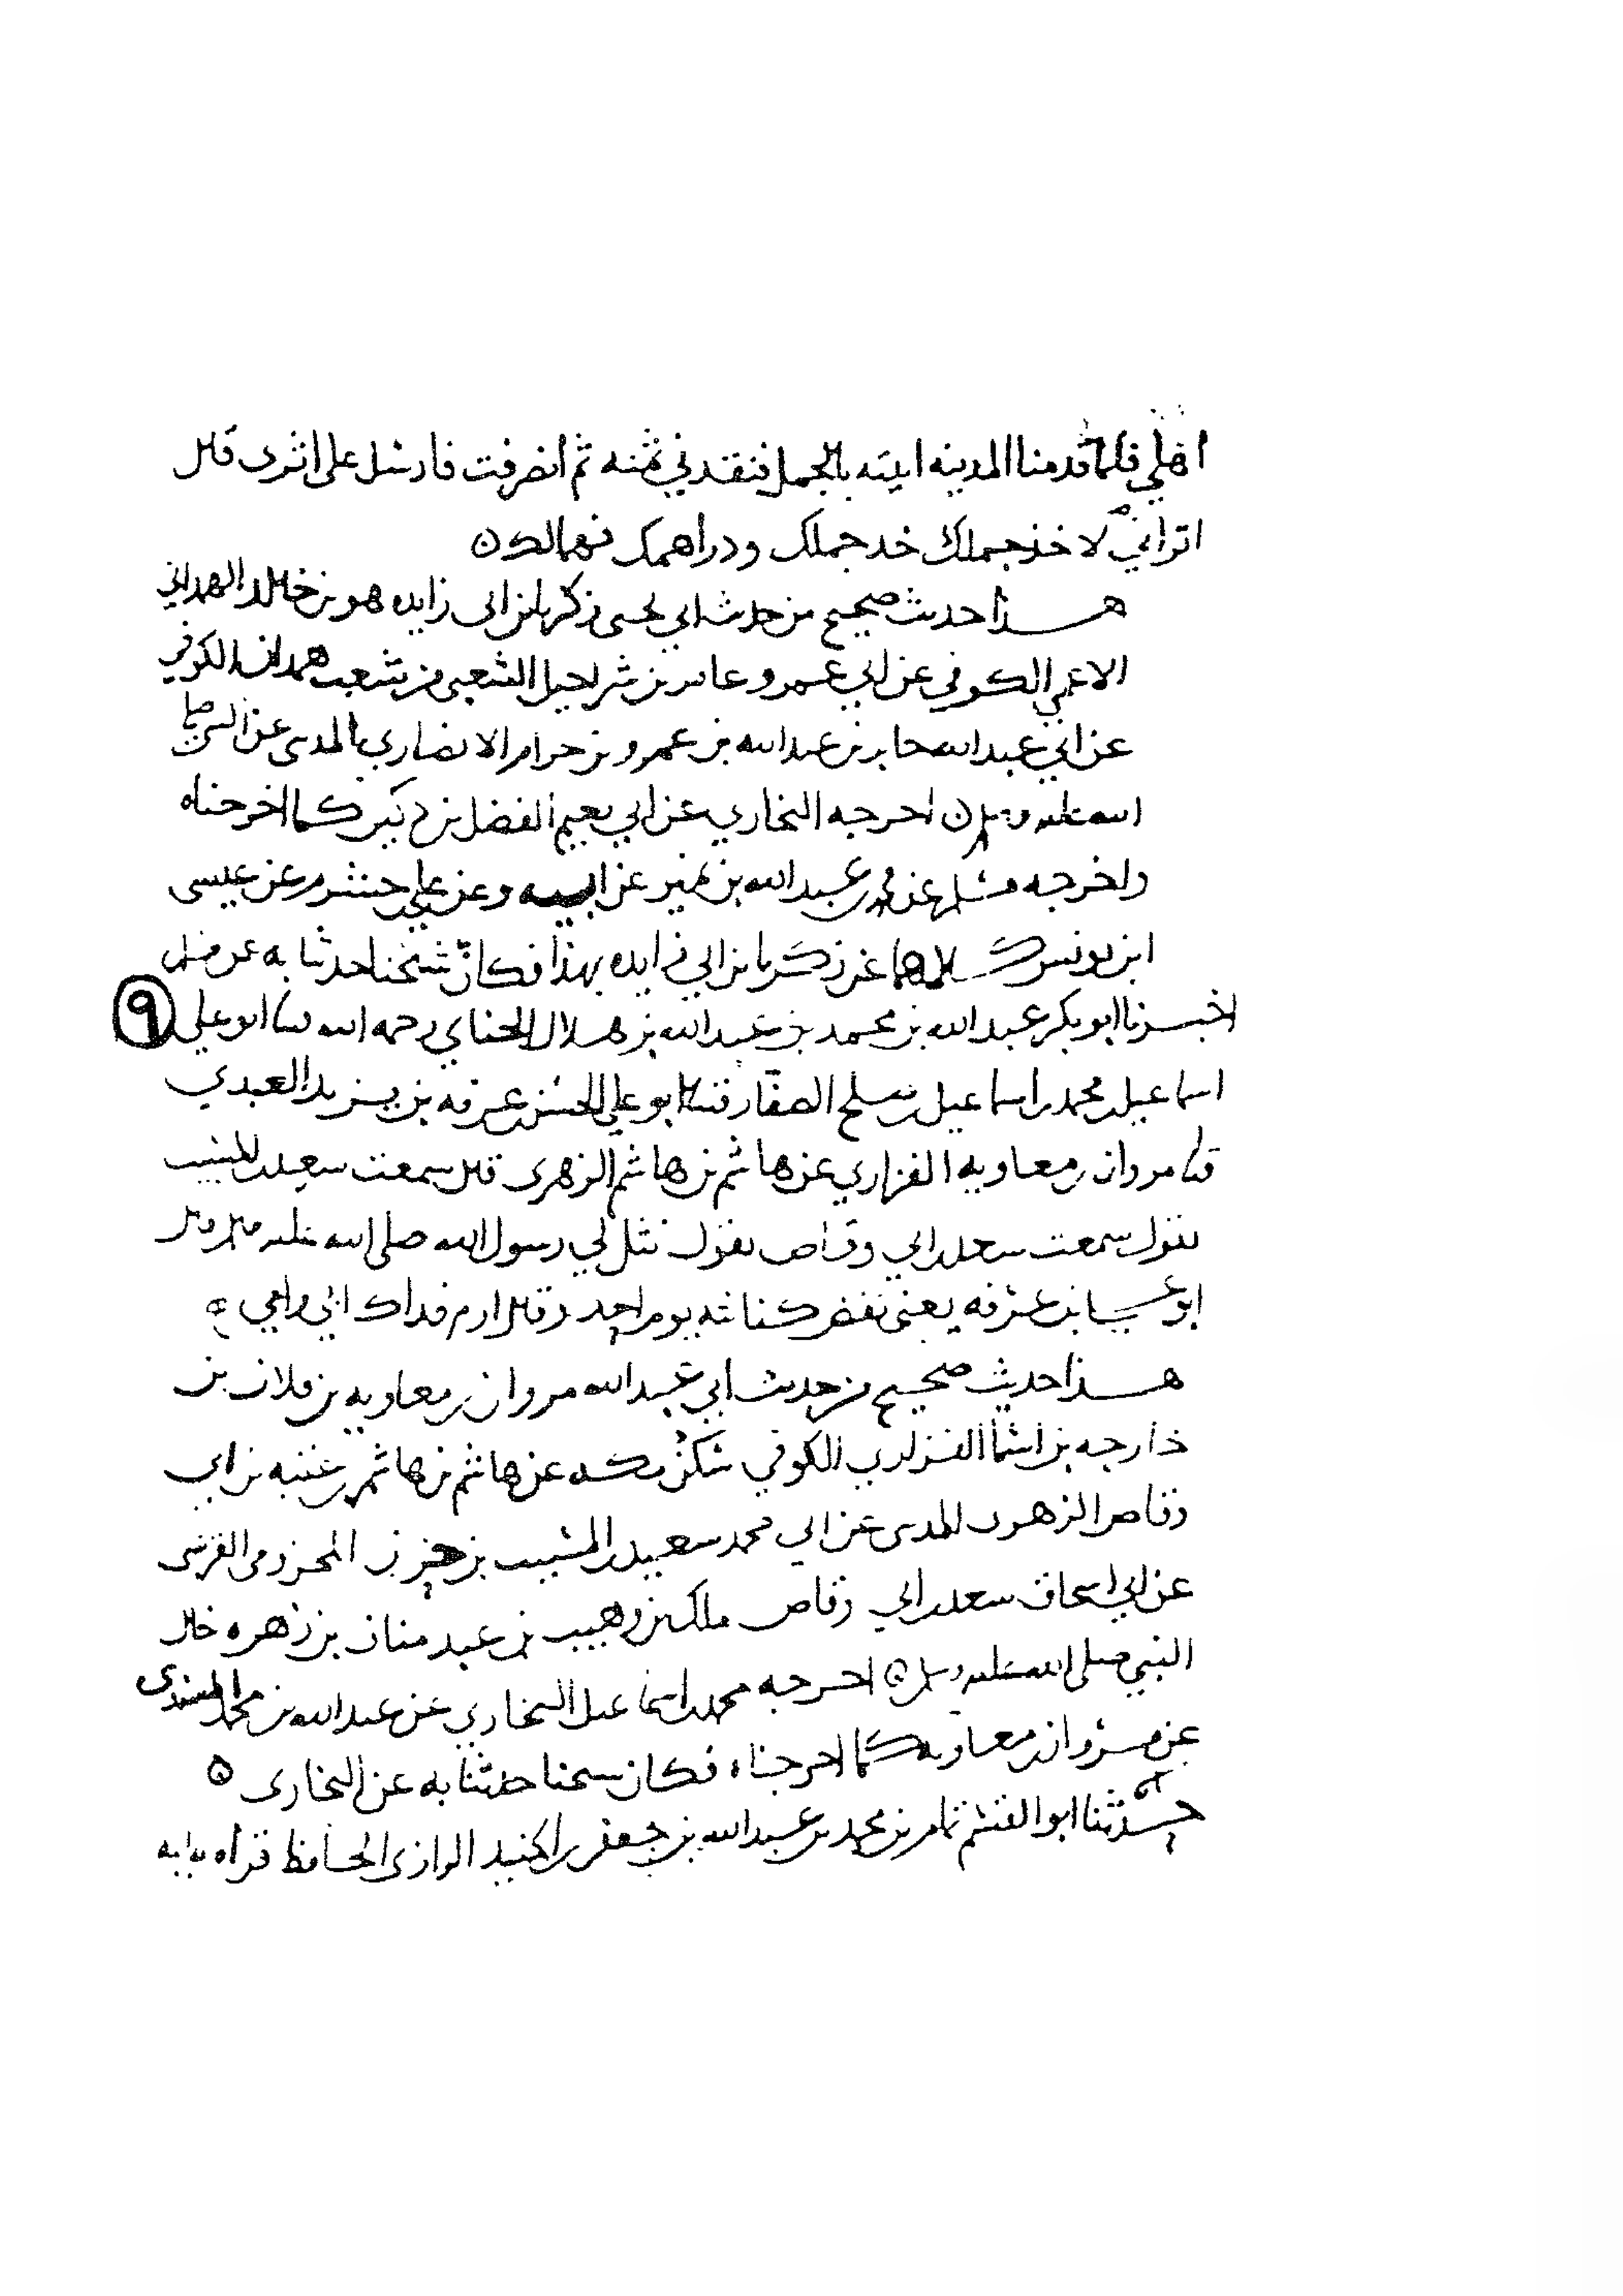 اهلي فلما قدمنا المدينه اتيته بالجمل فنقدني ثمنه ثم انصرفت فارسل على اثرى قال
اتراني لاخذ جملك خذ جملك ودراهمك فهما لك ن
هذا حديث صحيح من حديث ابي يحيى زكريا بن ابى زايده هو بن خالد الهمداني
الاعمى الكوفي عن ابي عمرو عامر بن شراحيل الشعبي من شعب همدان الكوفي
عن ابي عبد الله جابر بن عبد الله بن عمرو بن حرام الانصاري المدني عن النبي صلى
الله عليه وسلم ن اخرجه البخاري عن ابي نعيم الفضل بن دكين كما اخرجناه
واخرجه مسلم عن محمد بن عبد الله بن نمير عن ابيه وعن علي بن خشرم عن عيسى
ابن يونس كلاهما عن زكريا بن ابي زايده بهذا فكان شيخنا حدثنا به عن مسلم
اخبرنا ابو بكر عبد الله بن محمد بن عبد الله بن هلال الحناي رحمه الله ثنا ابو علي ٩
اسماعيل بن محمد بن اسماعيل بن صلح الصفار قثنا ابو علي الحسن بن عرفه بن يزيد العبدي
قثنا مروان بن معاويه الفزاري عن هاشم بن هاشم الزهرى قال سمعت سعيد بن المسيب
يقول سمعت سعد بن ابي وقاص يقول نثل لي رسول الله صلى الله عليه وسلم قال
ابو علي بن عرفه يعني نفض كنانته يوم احد وقال ارم فداك ابي وامي ه
هذا حديث صحيح من حديث ابي عبد الله مروان بن معاويه بن فلان بن
خارجه بن اسما الفزاري الكوفي سكن مكه عن هاشم بن هاشم بن عتبه بن ابي
وقاص الزهري المدني عن ابي محمد سعيد بن المسيب بن حزن المخزومى القرشى
عن ابي اسحاق سعد بن ابي وقاص ملك بن وهيب بن عبد مناف بن زهره خال
النبي صلى الله عليه وسلم ه اخرجه محمد بن اسماعيل البخاري عن عبد الله بن محمد المسندى
عن مروان بن معاويه كما اخرجناه فكان شيخنا حدثنا به عن البخارى ه
حدثنا ابو القسم تمام بن محمد بن عبد الله بن جعفر بن الجنيد الرازي الحافظ قراه